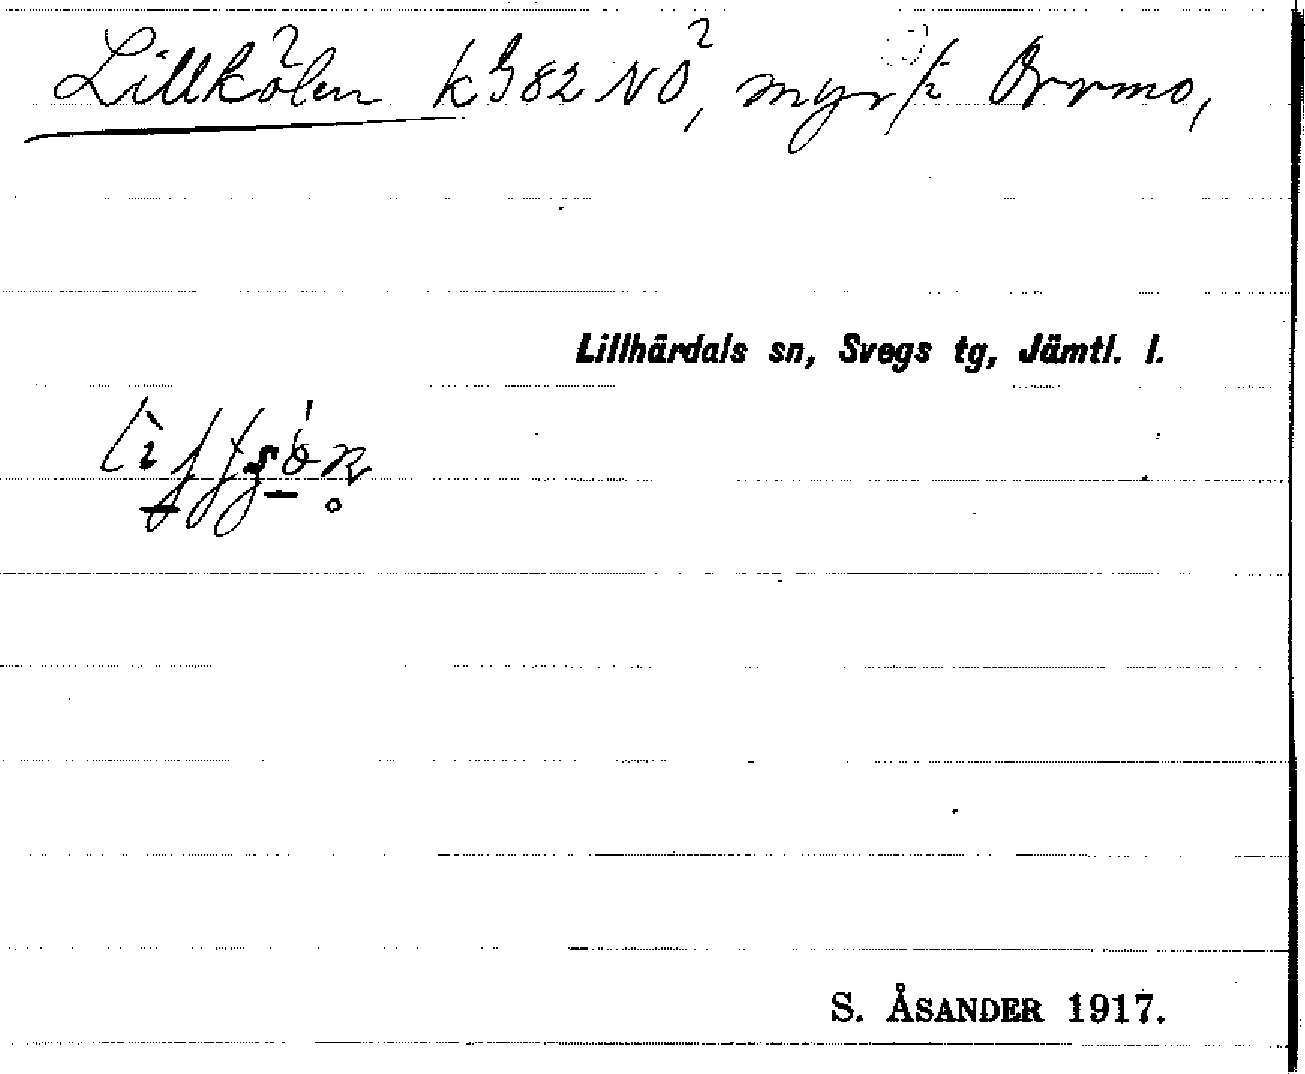 Lillkölen k G82 NO, myr i Orrmo,
Lillhärdals sn, Svegs tg, Jämtl. l.
S. ÅSANDER 1917.